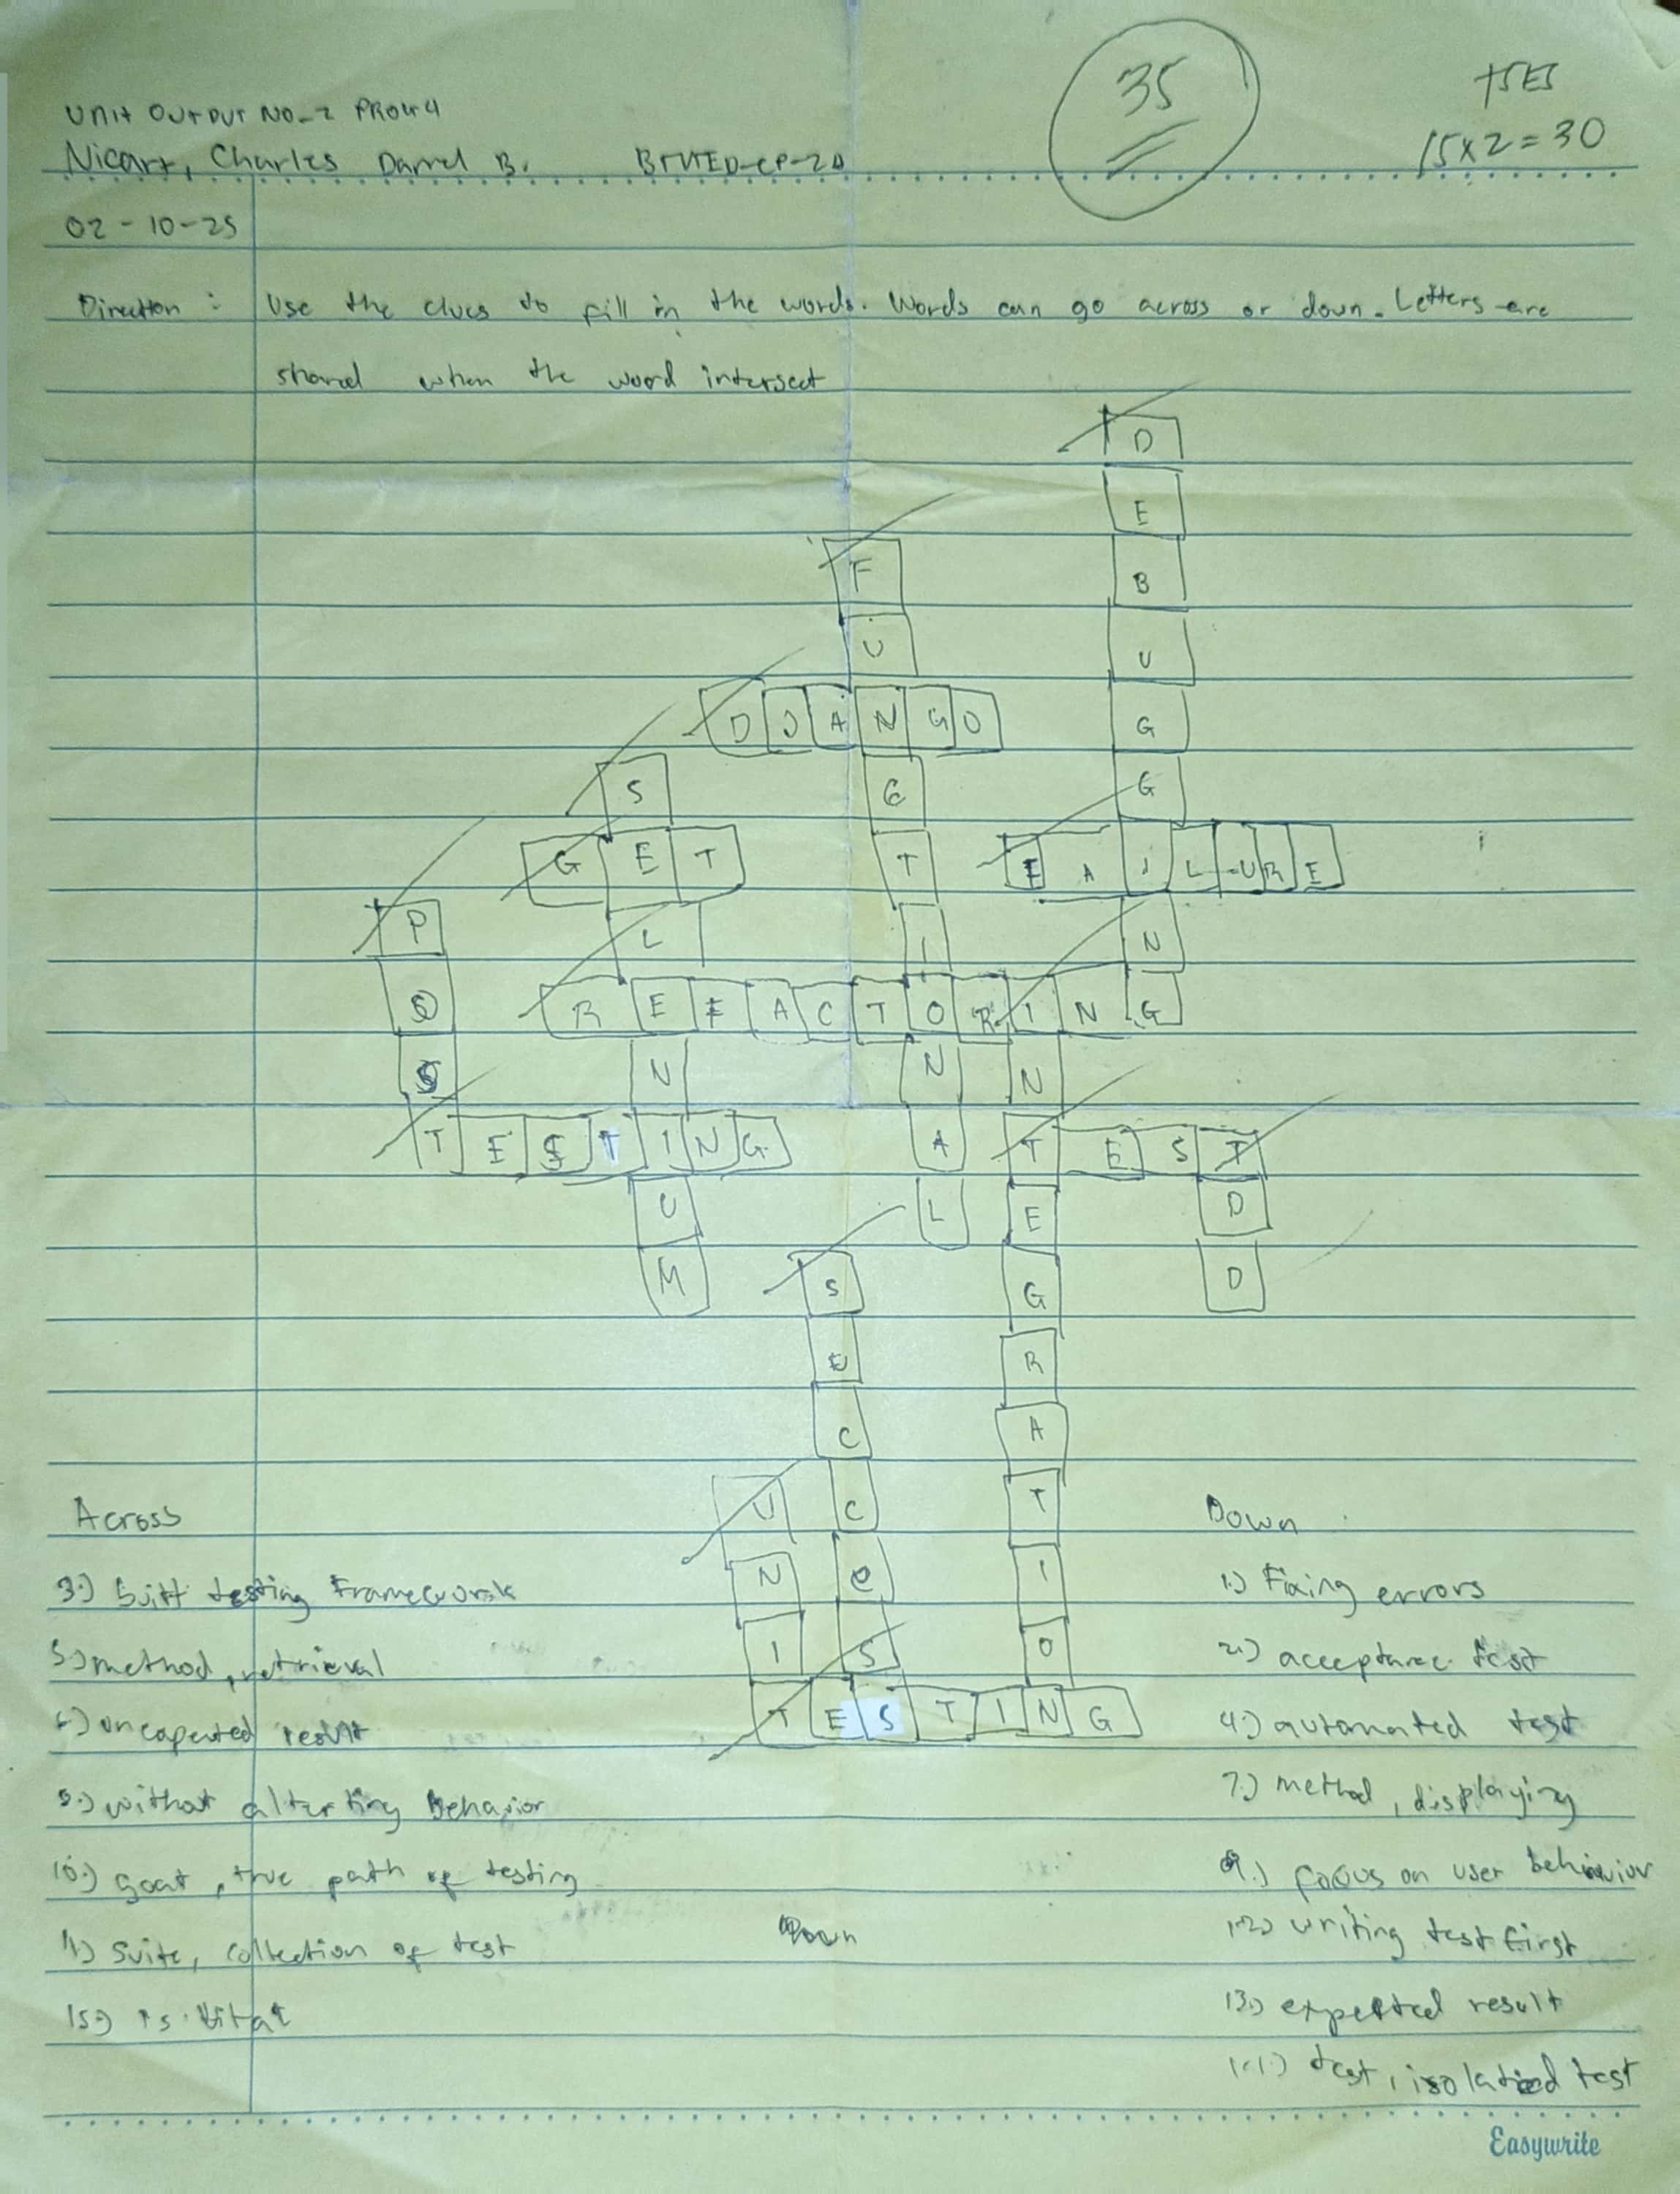 Unit Output No-2 PROG4
35
+5E5
15x2=30
Nicart, Charles Darrel B. BTVTED-CP-2A
02-10-25
Direction : Use the clues to fill in the words. Words can go across or down. Letters are
shared when the word intersect
D
E
F B
U U
D J A N G O G
S C G
G E T T F A I L U R E
P L I N
O R E F A C T O R I N G
S N N N
T E S T I N G A T E S T
U L E D
M S G D
E R
C A
U C T
N e I
I S O
T E S T I N G
Across
3.) built testing Framework
5.) method, retrieval
6.) unexpected result
8.) without altering Behavior
10.) goat, true path of testing
11.) Suite, collection of test
15.) is vital
Down
Down
1.) Fixing errors
2.) acceptance test
4.) automated test
7.) method, displaying
9.) focus on user behavior
12.) writing test first
13.) expected result
14.) test, isolated test
Easywrite